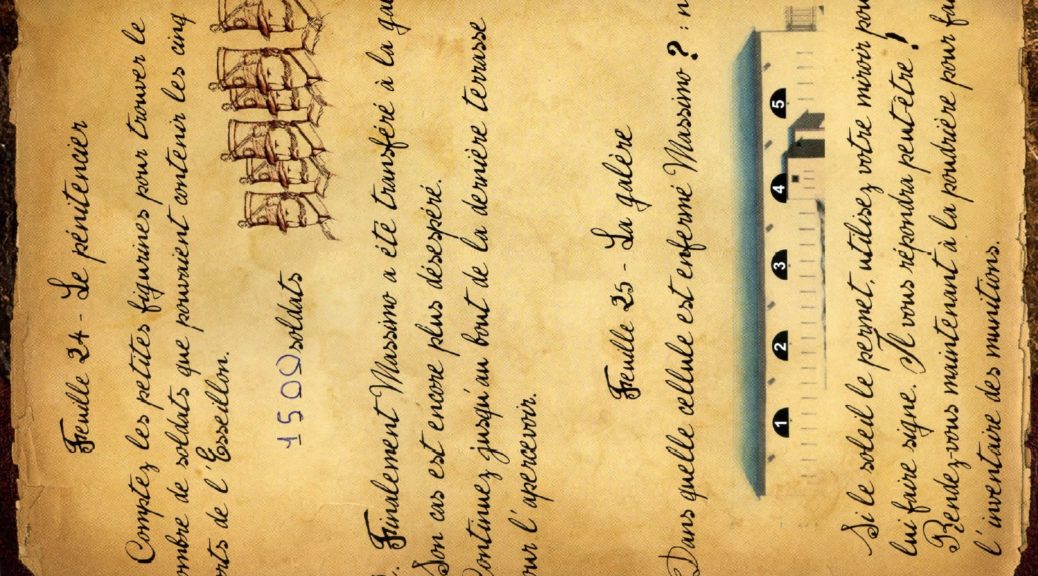 Feuille 24 - Le pénitencier
Comptez les petites figurines pour trouver le
ombre de soldats que pouvaient contenir les cinq
orts de l'Esseillon.
1500 soldats
. Finalement Massimo a été transféré à la ga
Son cas est encore plus désespéré.
ontinuez jusqu'au bout de la dernière terrasse
our l'apercevoir.
Feuille 25 - La galère
Dans quelle cellule est enfermé Massimo ? : n
1 2 3 4 5
Si le soleil le permet, utilisez votre miroir pou
lui faire signe. Il vous répondra peut-être !
Rendez-vous maintenant à la poudrière pour fai
l'inventaire des munitions.